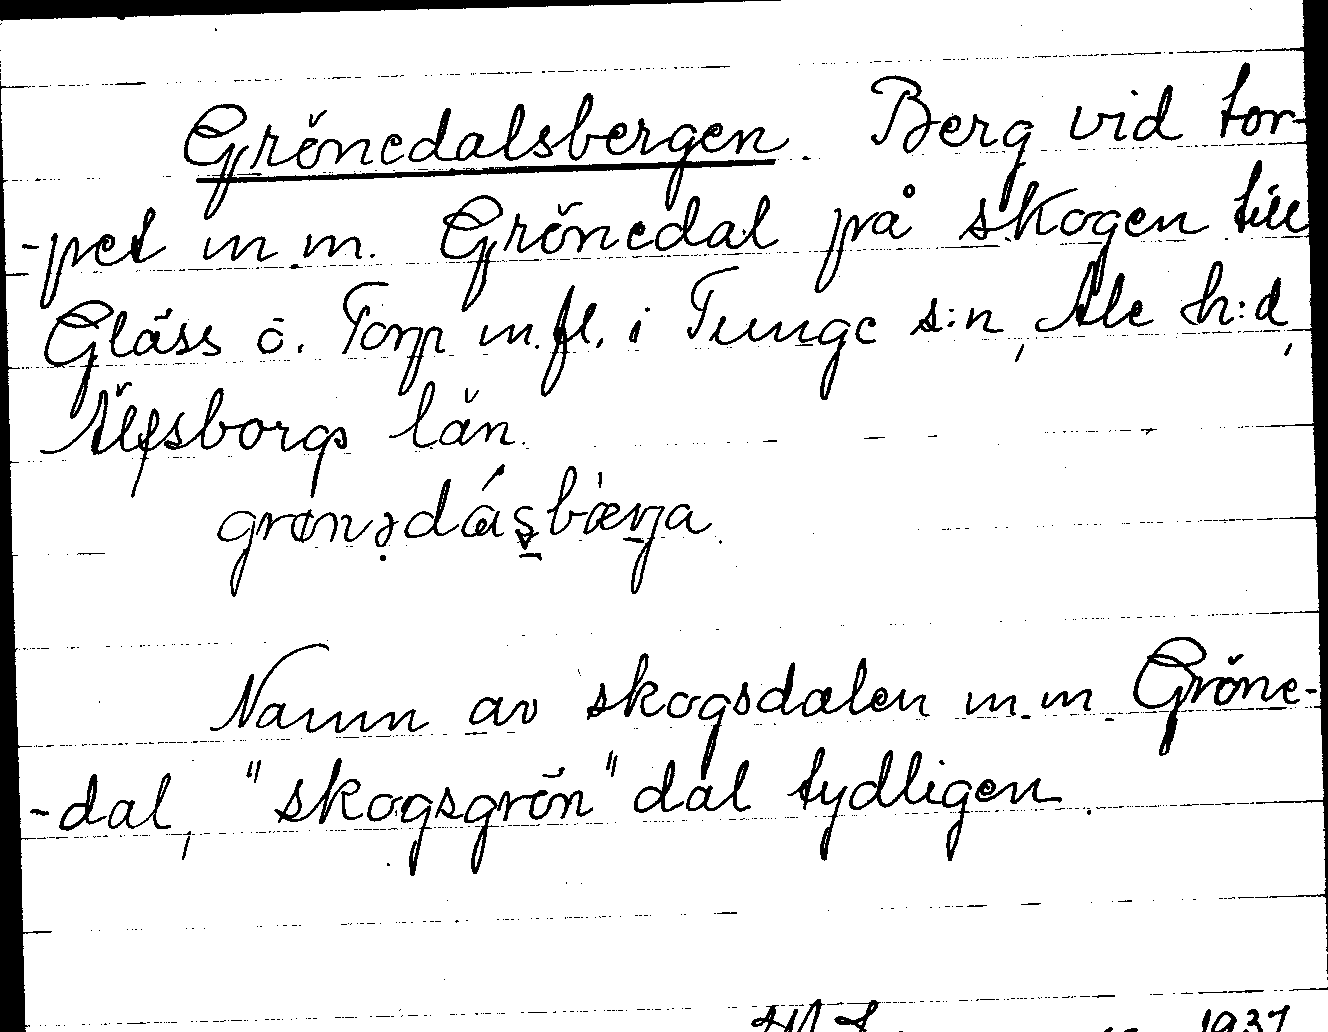 Grönedalsbergen. Berg vid tor-
-pet m.m. Grönedal på skogen till
Gläss ö. Torp m.fl. i Tunge s:n, Ale h:d,
Älfsborgs län.
Namn av skogsdalen m.m. Gröne-
-dal, "skogsgrön" dal tydligen.
1937